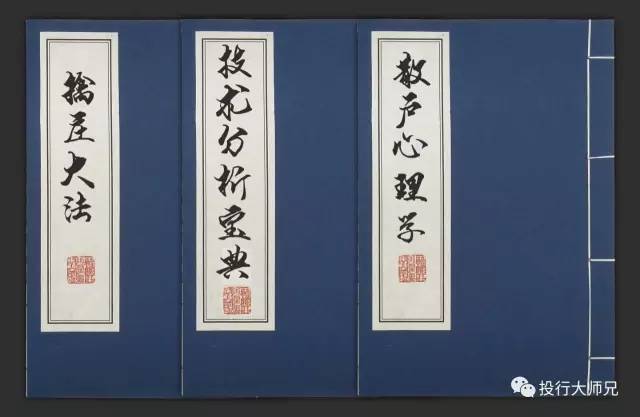 散户心理学
技术分析宝典
擒庄大法
投行大师兄